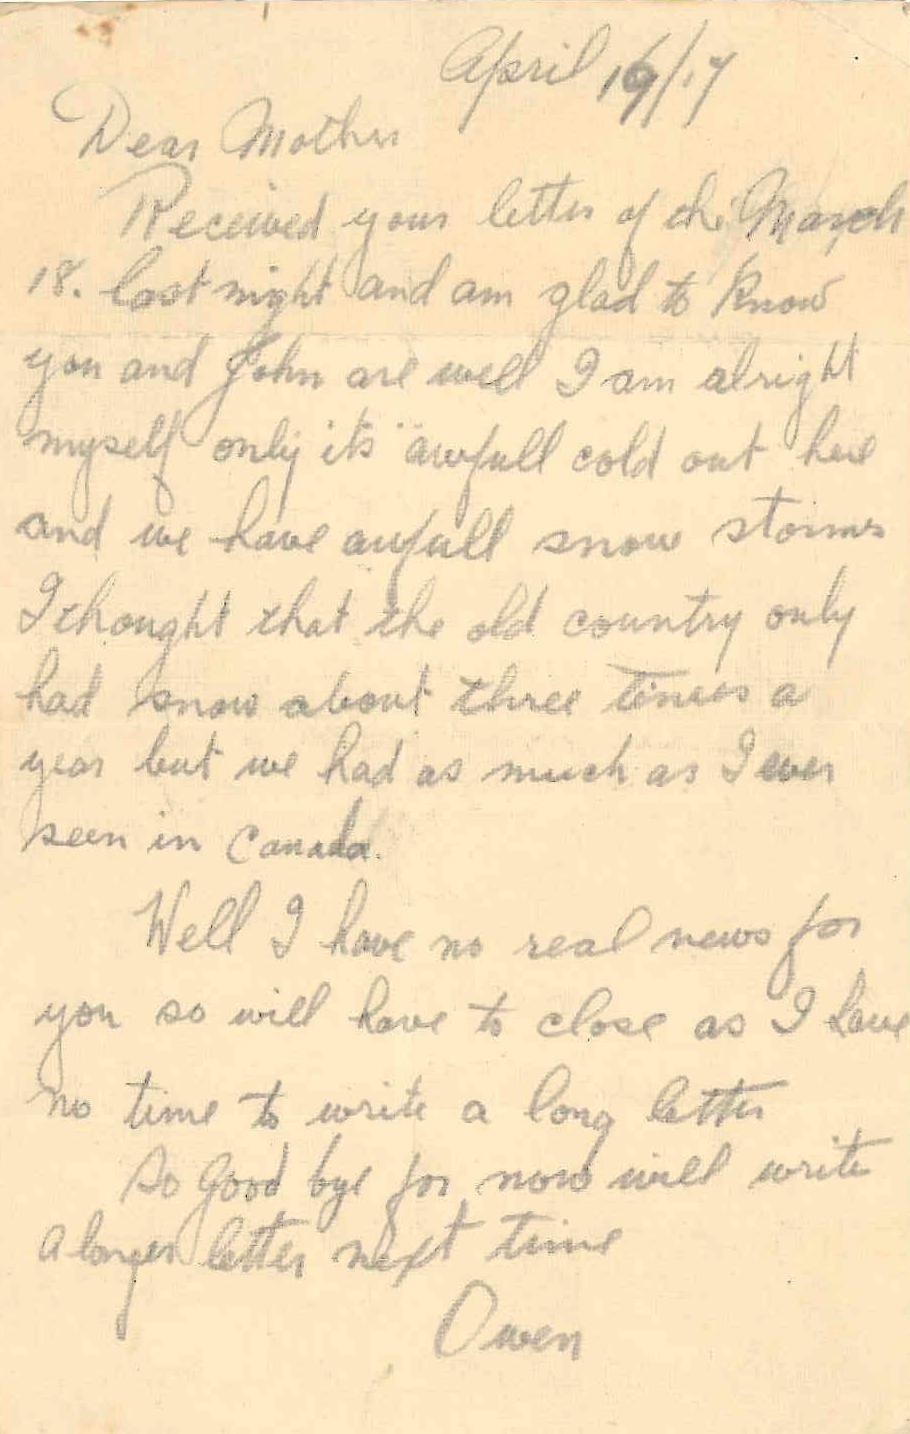 April 16/17
Dear Mother
Received your letter of the March
18. last night and am glad to know
you and John are well I am alright
myself only it's awfull cold out here
and we have awfull snow storms
I thought that the old country only
had snow about three times a
year but we had as much as I ever
seen in Canada.
Well I have no real news for
you so will have to close as I have
no time to write a long letter
So Good bye for now will write
a longer letter next time
Owen